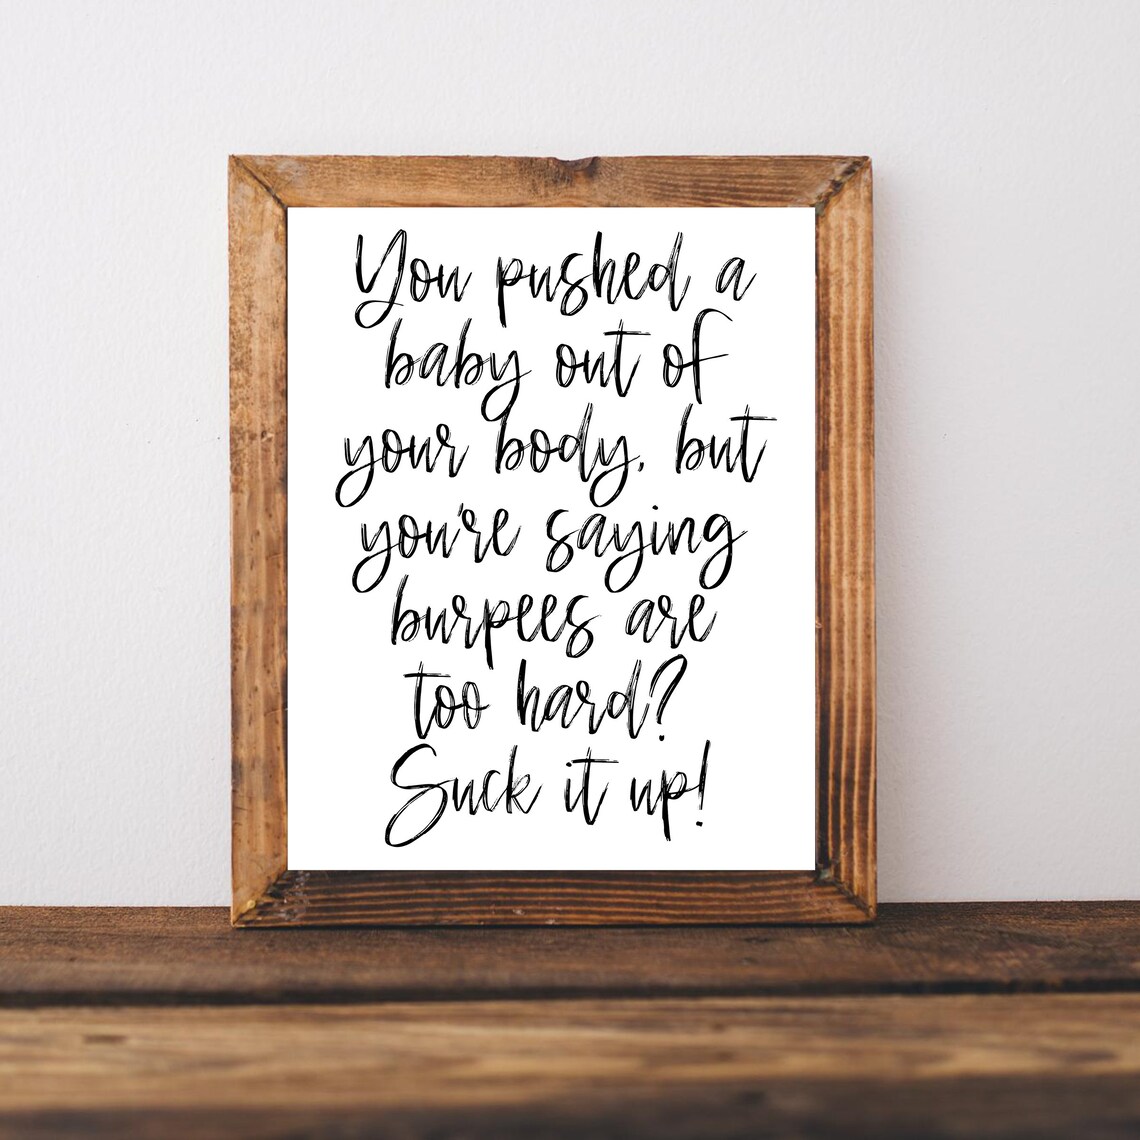 You pushed a
baby out of
your body, but
you're saying
burpees are
too hard?
Suck it up!